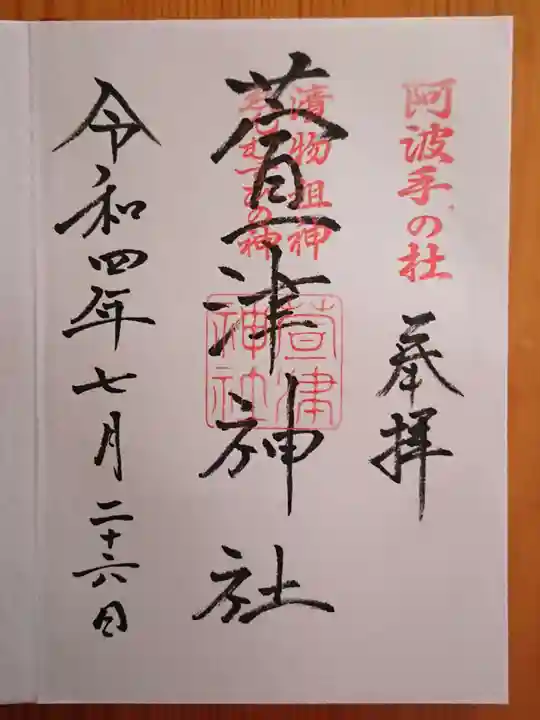 阿波手の杜
奉拝
漬物祖神
萱津神社
萱津
神社
令和四年七月二十六日